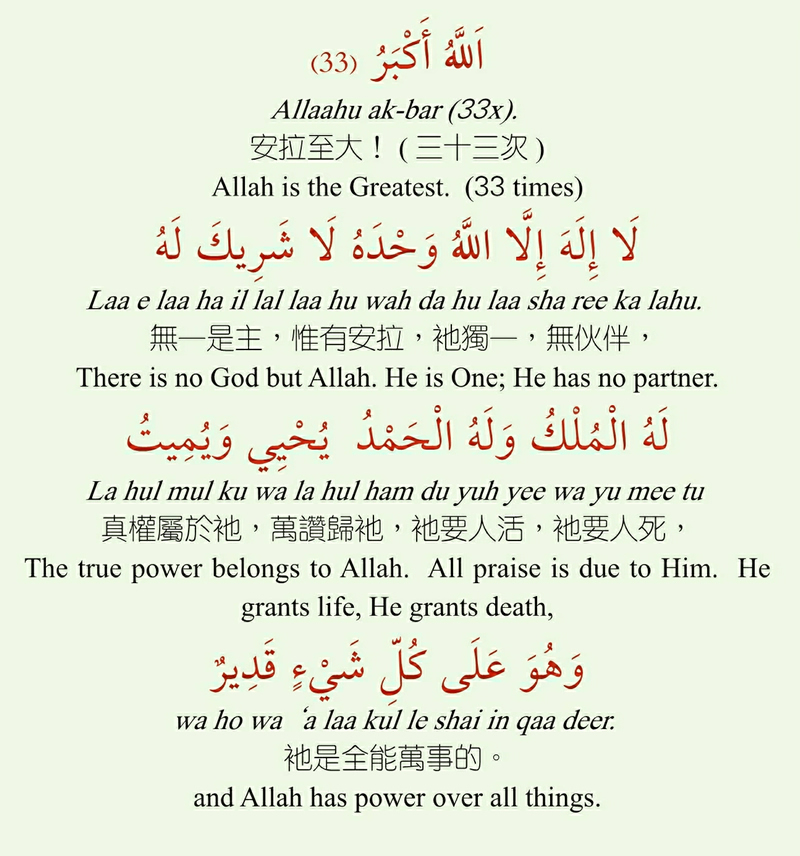 اَللَّهُ أَكْبَرُ (33)
Allaahu ak-bar (33x).
安拉至大！ ( 三十三次 )
Allah is the Greatest.  (33 times)
لَا إِلَهَ إِلَّا اللَّهُ وَحْدَهُ لَا شَرِيكَ لَهُ
Laa e laa ha il lal laa hu wah da hu laa sha ree ka lahu.
無一是主，惟有安拉，祂獨一，無伙伴，
There is no God but Allah. He is One; He has no partner.
لَهُ الْمُلْكُ وَلَهُ الْحَمْدُ  يُحْيِي وَيُمِيتُ
La hul mul ku wa la hul ham du yuh yee wa yu mee tu
真權屬於祂，萬讚歸祂，祂要人活，祂要人死，
The true power belongs to Allah.  All praise is due to Him.  He
grants life, He grants death,
وَهُوَ عَلَى كُلِّ شَيْءٍ قَدِيرٌ
wa ho wa  ‘a laa kul le shai in qaa deer.
祂是全能萬事的。
and Allah has power over all things.